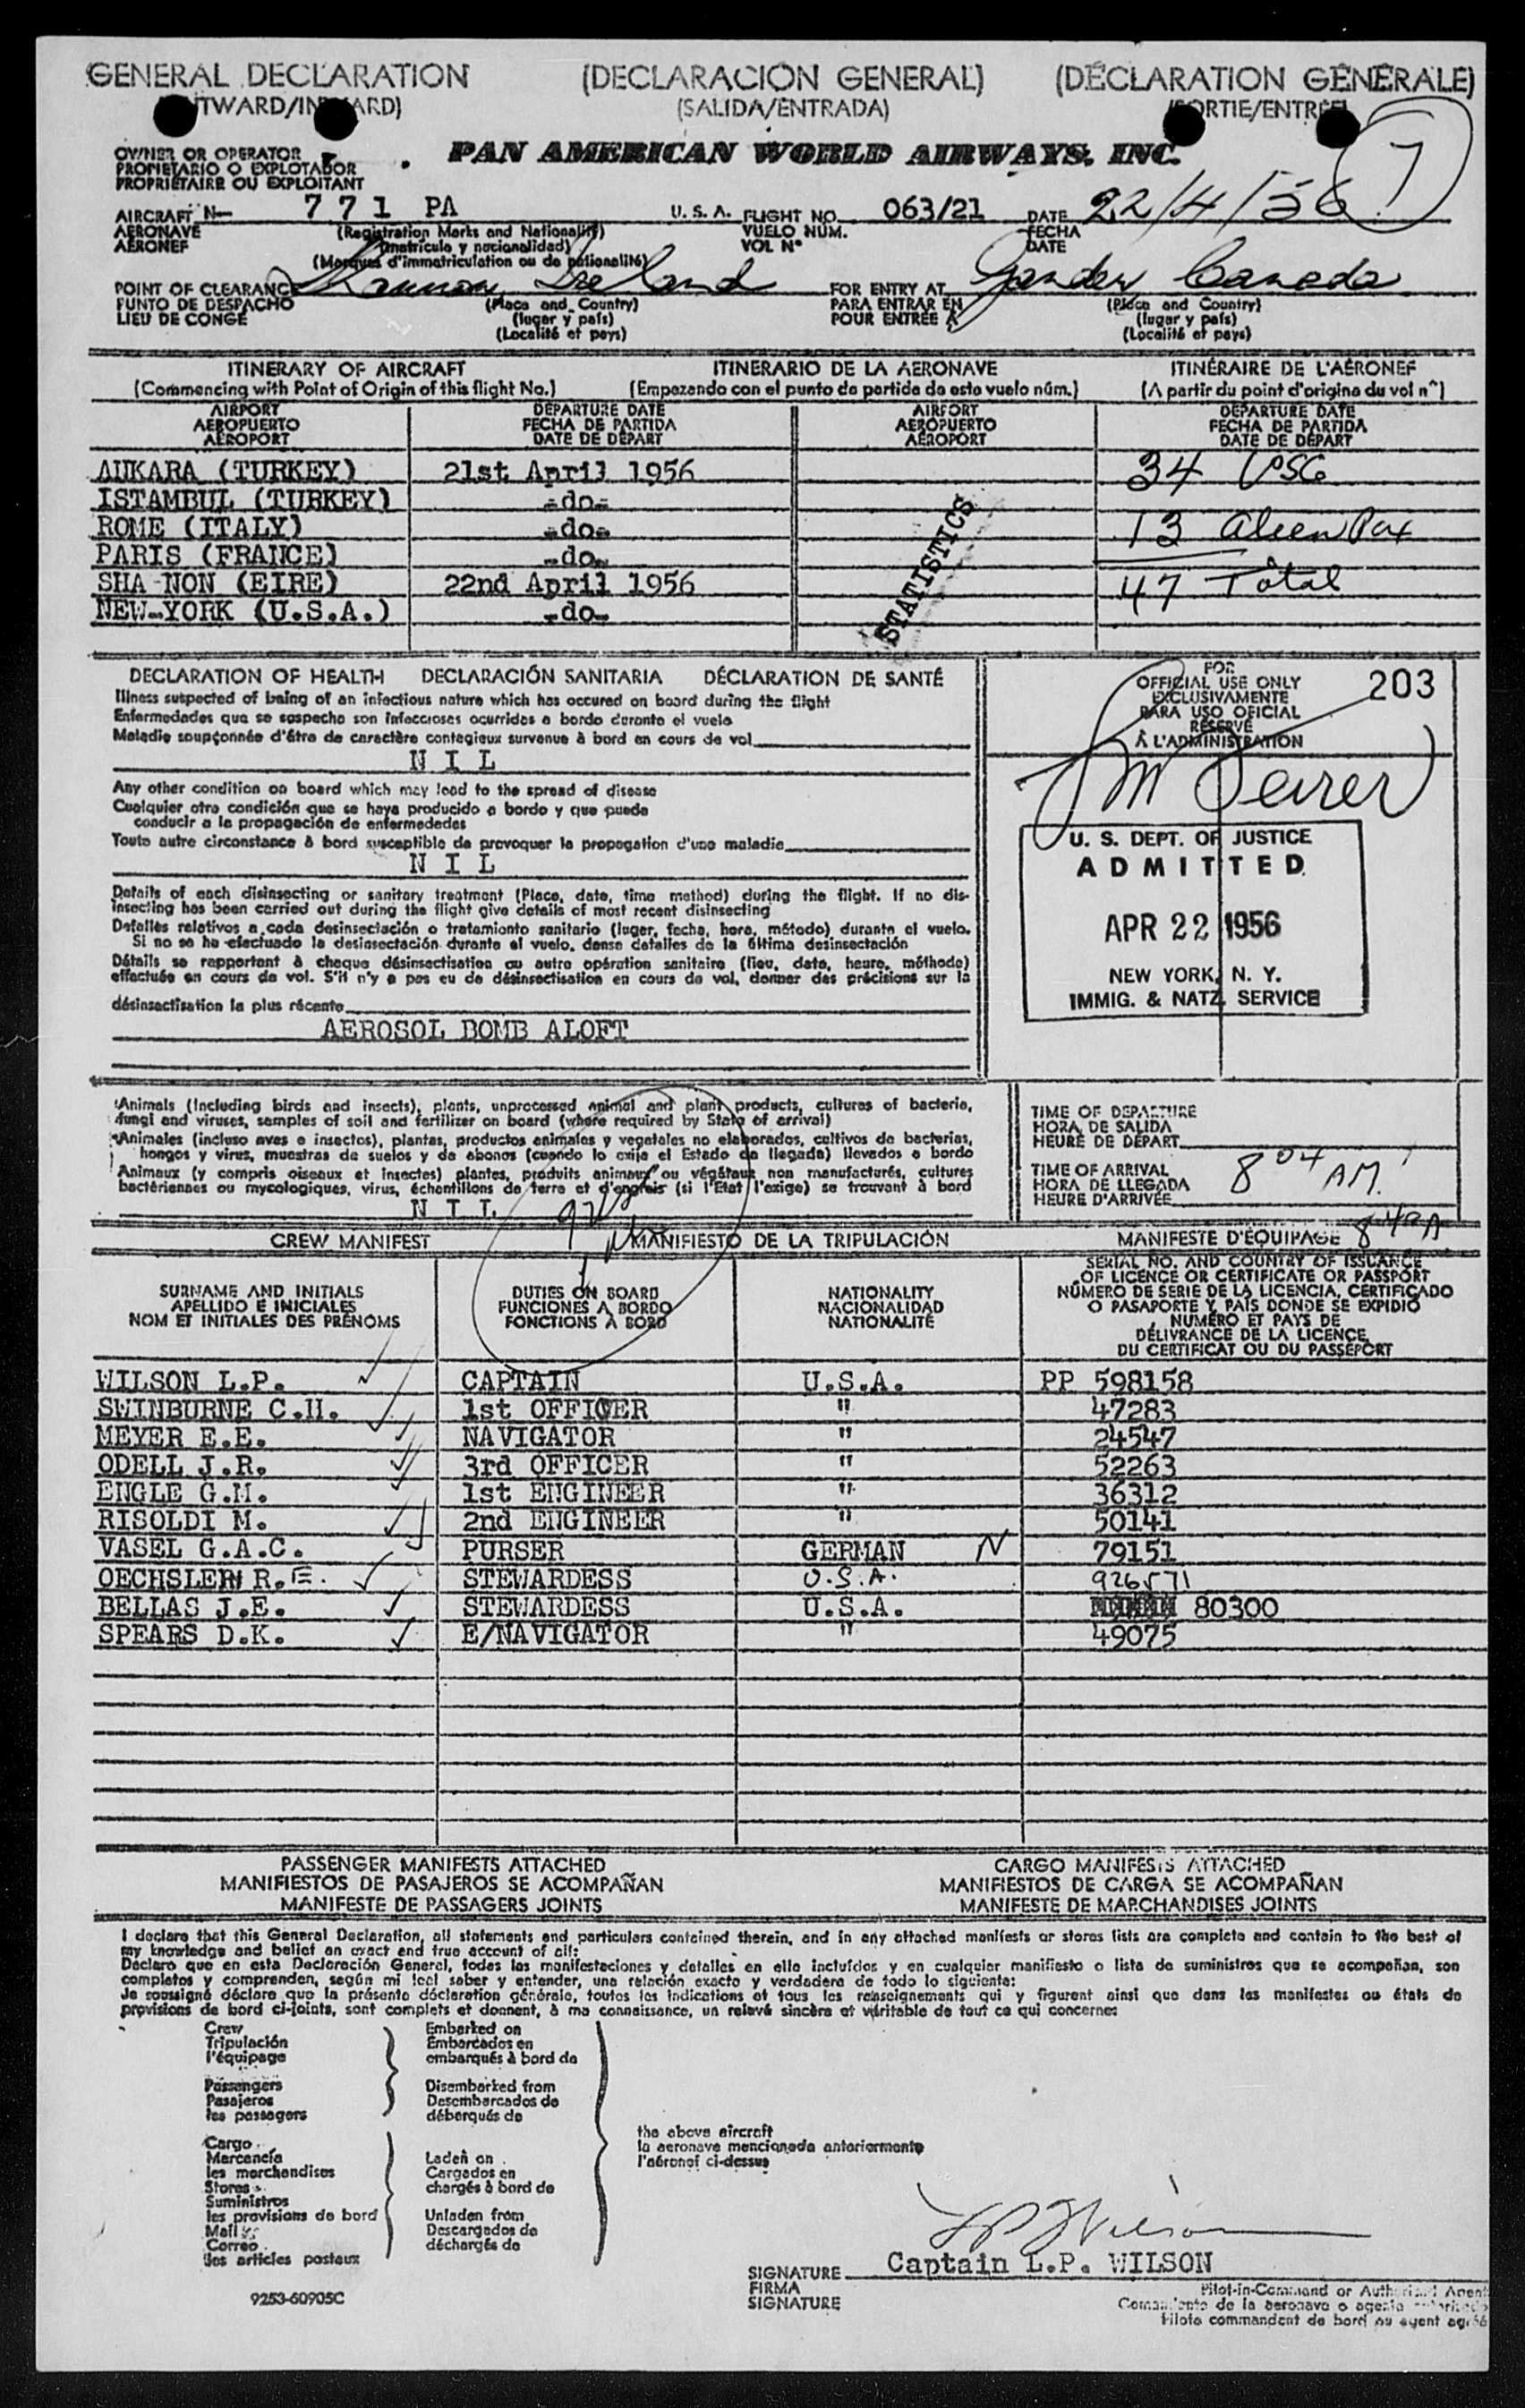 GENERAL DECLARATION (DECLARACIÓN GENERAL) (DÉCLARATION GÉNÉRALE)
(SALIDA/ENTRADA)
OWNER OR OPERATOR
PROPIETARIO O EXPLOTADOR
PROPRIÉTAIRE OU EXPLOITANT
PAN AMERICAN WORLD AIRWAYS, INC.
7
AIRCRAFT N— 771 PA U.S.A. FLIGHT NO. 063/21 DATE 22/4/56
AERONAVE (Registration Marks and Nationality) VUELO NÚM. FECHA
AÉRONEF (matrícula y nacionalidad) VOL N° DATE
(Marques d'immatriculation ou de nationalité)
POINT OF CLEARANCE Shannon Ireland FOR ENTRY AT Gander Canada
PUNTO DE DESPACHO (Place and Country) PARA ENTRAR EN (Place and Country)
LIEU DE CONGÉ (lugar y país) POUR ENTRÉE À (lugar y país)
(Localité et pays) (Localité et pays)
ITINERARY OF AIRCRAFT ITINERARIO DE LA AERONAVE ITINÉRAIRE DE L'AÉRONEF
(Commencing with Point of Origin of this flight No.) (Empezando con el punto de partida de este vuelo núm.) (A partir du point d'origine du vol n°)
AIRPORT DEPARTURE DATE AIRPORT DEPARTURE DATE
AEROPUERTO FECHA DE PARTIDA AEROPUERTO FECHA DE PARTIDA
AÉROPORT DATE DE DÉPART AÉROPORT DATE DE DÉPART
ANKARA (TURKEY) 21st April 1956 34 USC
ISTAMBUL (TURKEY) -do-
ROME (ITALY) -do- 13 alien Pax
PARIS (FRANCE) -do-
SHA NON (EIRE) 22nd April 1956 47 Total
NEW-YORK (U.S.A.) -do-
STATISTICS
DECLARATION OF HEALTH DECLARACIÓN SANITARIA DÉCLARATION DE SANTÉ
Illness suspected of being of an infectious nature which has occured on board during the flight
Enfermedades que se sospecha son infecciosas ocurridas a bordo durante el vuelo
Maladie soupçonnée d'être de caractère contagieux survenue à bord en cours de vol
N I L
Any other condition on board which may lead to the spread of disease
Cualquier otra condición que se haya producido a bordo y que puede
conducir a la propagación de enfermedades
Toute autre circonstance à bord susceptible de provoquer la propagation d'une maladie
N I L
Details of each disinsecting or sanitary treatment (Place, date, time method) during the flight. If no dis-
insecting has been carried out during the flight give details of most recent disinsecting
Detalles relativos a cada desinsectación o tratamiento sanitario (lugar, fecha, hora, método) durante el vuelo.
Si no se ha efectuado la desinsectación durante el vuelo, dense detalles de la última desinsectación
Détails se rapportant à chaque désinsectisation ou autre opération sanitaire (lieu, date, heure, méthode)
effectuée en cours de vol. S'il n'y a pas eu de désinsectisation en cours de vol, donner des précisions sur la
désinsectisation la plus récente
AEROSOL BOMB ALOFT
FOR
OFFICIAL USE ONLY
EXCLUSIVAMENTE
PARA USO OFICIAL
RÉSERVÉ
À L'ADMINISTRATION
203
U. S. DEPT. OF JUSTICE
ADMITTED
APR 22 1956
NEW YORK, N. Y.
IMMIG. & NATZ. SERVICE
Animals (Including birds and insects), plants, unprocessed animal and plant products, cultures of bacteria,
fungi and viruses, samples of soil and fertilizer on board (where required by State of arrival)
Animales (incluso aves e insectos), plantas, productos animales y vegetales no elaborados, cultivos de bacterias,
hongos y virus, muestras de suelos y de abonos (cuando lo exija el Estado de llegada) llevados a bordo
Animaux (y compris oiseaux et insectes) plantes, produits animaux ou végétaux non manufacturés, cultures
bactériennes ou mycologiques, virus, échantillons de terre et d'engrais (si l'Etat l'exige) se trouvant à bord
N I L
TIME OF DEPARTURE
HORA DE SALIDA
HEURE DE DÉPART
TIME OF ARRIVAL
HORA DE LLEGADA
HEURE D'ARRIVÉE
8 04 AM.
8 40 A
CREW MANIFEST MANIFIESTO DE LA TRIPULACIÓN MANIFESTE D'ÉQUIPAGE
SURNAME AND INITIALS
APELLIDO E INICIALES
NOM ET INITIALES DES PRÉNOMS
DUTIES ON BOARD
FUNCIONES A BORDO
FONCTIONS À BORD
NATIONALITY
NACIONALIDAD
NATIONALITÉ
SERIAL NO. AND COUNTRY OF ISSUANCE
OF LICENCE OR CERTIFICATE OR PASSPORT
NÚMERO DE SERIE DE LA LICENCIA, CERTIFICADO
O PASAPORTE Y PAÍS DONDE SE EXPIDIÓ
NUMÉRO ET PAYS DE
DÉLIVRANCE DE LA LICENCE
DU CERTIFICAT OU DU PASSEPORT
WILSON L.P. CAPTAIN U.S.A. PP 598158
SWINBURNE C.H. 1st OFFICER " 47283
MEYER E.E. NAVIGATOR " 24547
ODELL J.R. 3rd OFFICER " 52263
ENGLE G.M. 1st ENGINEER " 36312
RISOLDI M. 2nd ENGINEER " 50141
VASEL G.A.C. PURSER GERMAN N 79151
OECHSLER R.E. STEWARDESS U.S.A. 926571
BELLAS J.E. STEWARDESS U.S.A. 80300
SPEARS D.K. E/NAVIGATOR " 49075
PASSENGER MANIFESTS ATTACHED CARGO MANIFESTS ATTACHED
MANIFIESTOS DE PASAJEROS SE ACOMPAÑAN MANIFIESTOS DE CARGA SE ACOMPAÑAN
MANIFESTE DE PASSAGERS JOINTS MANIFESTE DE MARCHANDISES JOINTS
I declare that this General Declaration, all statements and particulars contained therein, and in any attached manifests or stores lists are complete and contain to the best of
my knowledge and belief an exact and true account of all:
Declaro que en esta Declaración General, todas las manifestaciones y detalles en ella incluídos y en cualquier manifiesto o lista de suministros que se acompañan, son
completos y comprenden, según mi leal saber y entender, una relación exacta y verdadera de todo lo siguiente:
Je soussigné déclare que la présente déclaration générale, toutes les indications et tous les renseignements qui y figurent ainsi que dans les manifestes ou états de
provisions de bord ci-joints, sont complets et donnent, à ma connaissance, un relevé sincère et véritable de tout ce qui concerne:
Crew Embarked on
Tripulación Embarcados en
l'équipage embarqués à bord de
Passengers Disembarked from
Pasajeros Desembarcados de
les passagers débarqués de
the above aircraft
la aeronave mencionada anteriormente
l'aéronef ci-dessus
Cargo
Mercancía Laden on
les marchandises Cargados en
Stores chargés à bord de
Suministros
les provisions de bord Unladen from
Mail Descargados de
Correo déchargés de
les articles postaux
LP Wilson
SIGNATURE Captain L.P. WILSON
FIRMA
SIGNATURE
Pilot-in-Command or Authorised Agent
Comandante de la aeronave o agente autorizado
Pilote commandant de bord ou agent agréé
9253-60905C